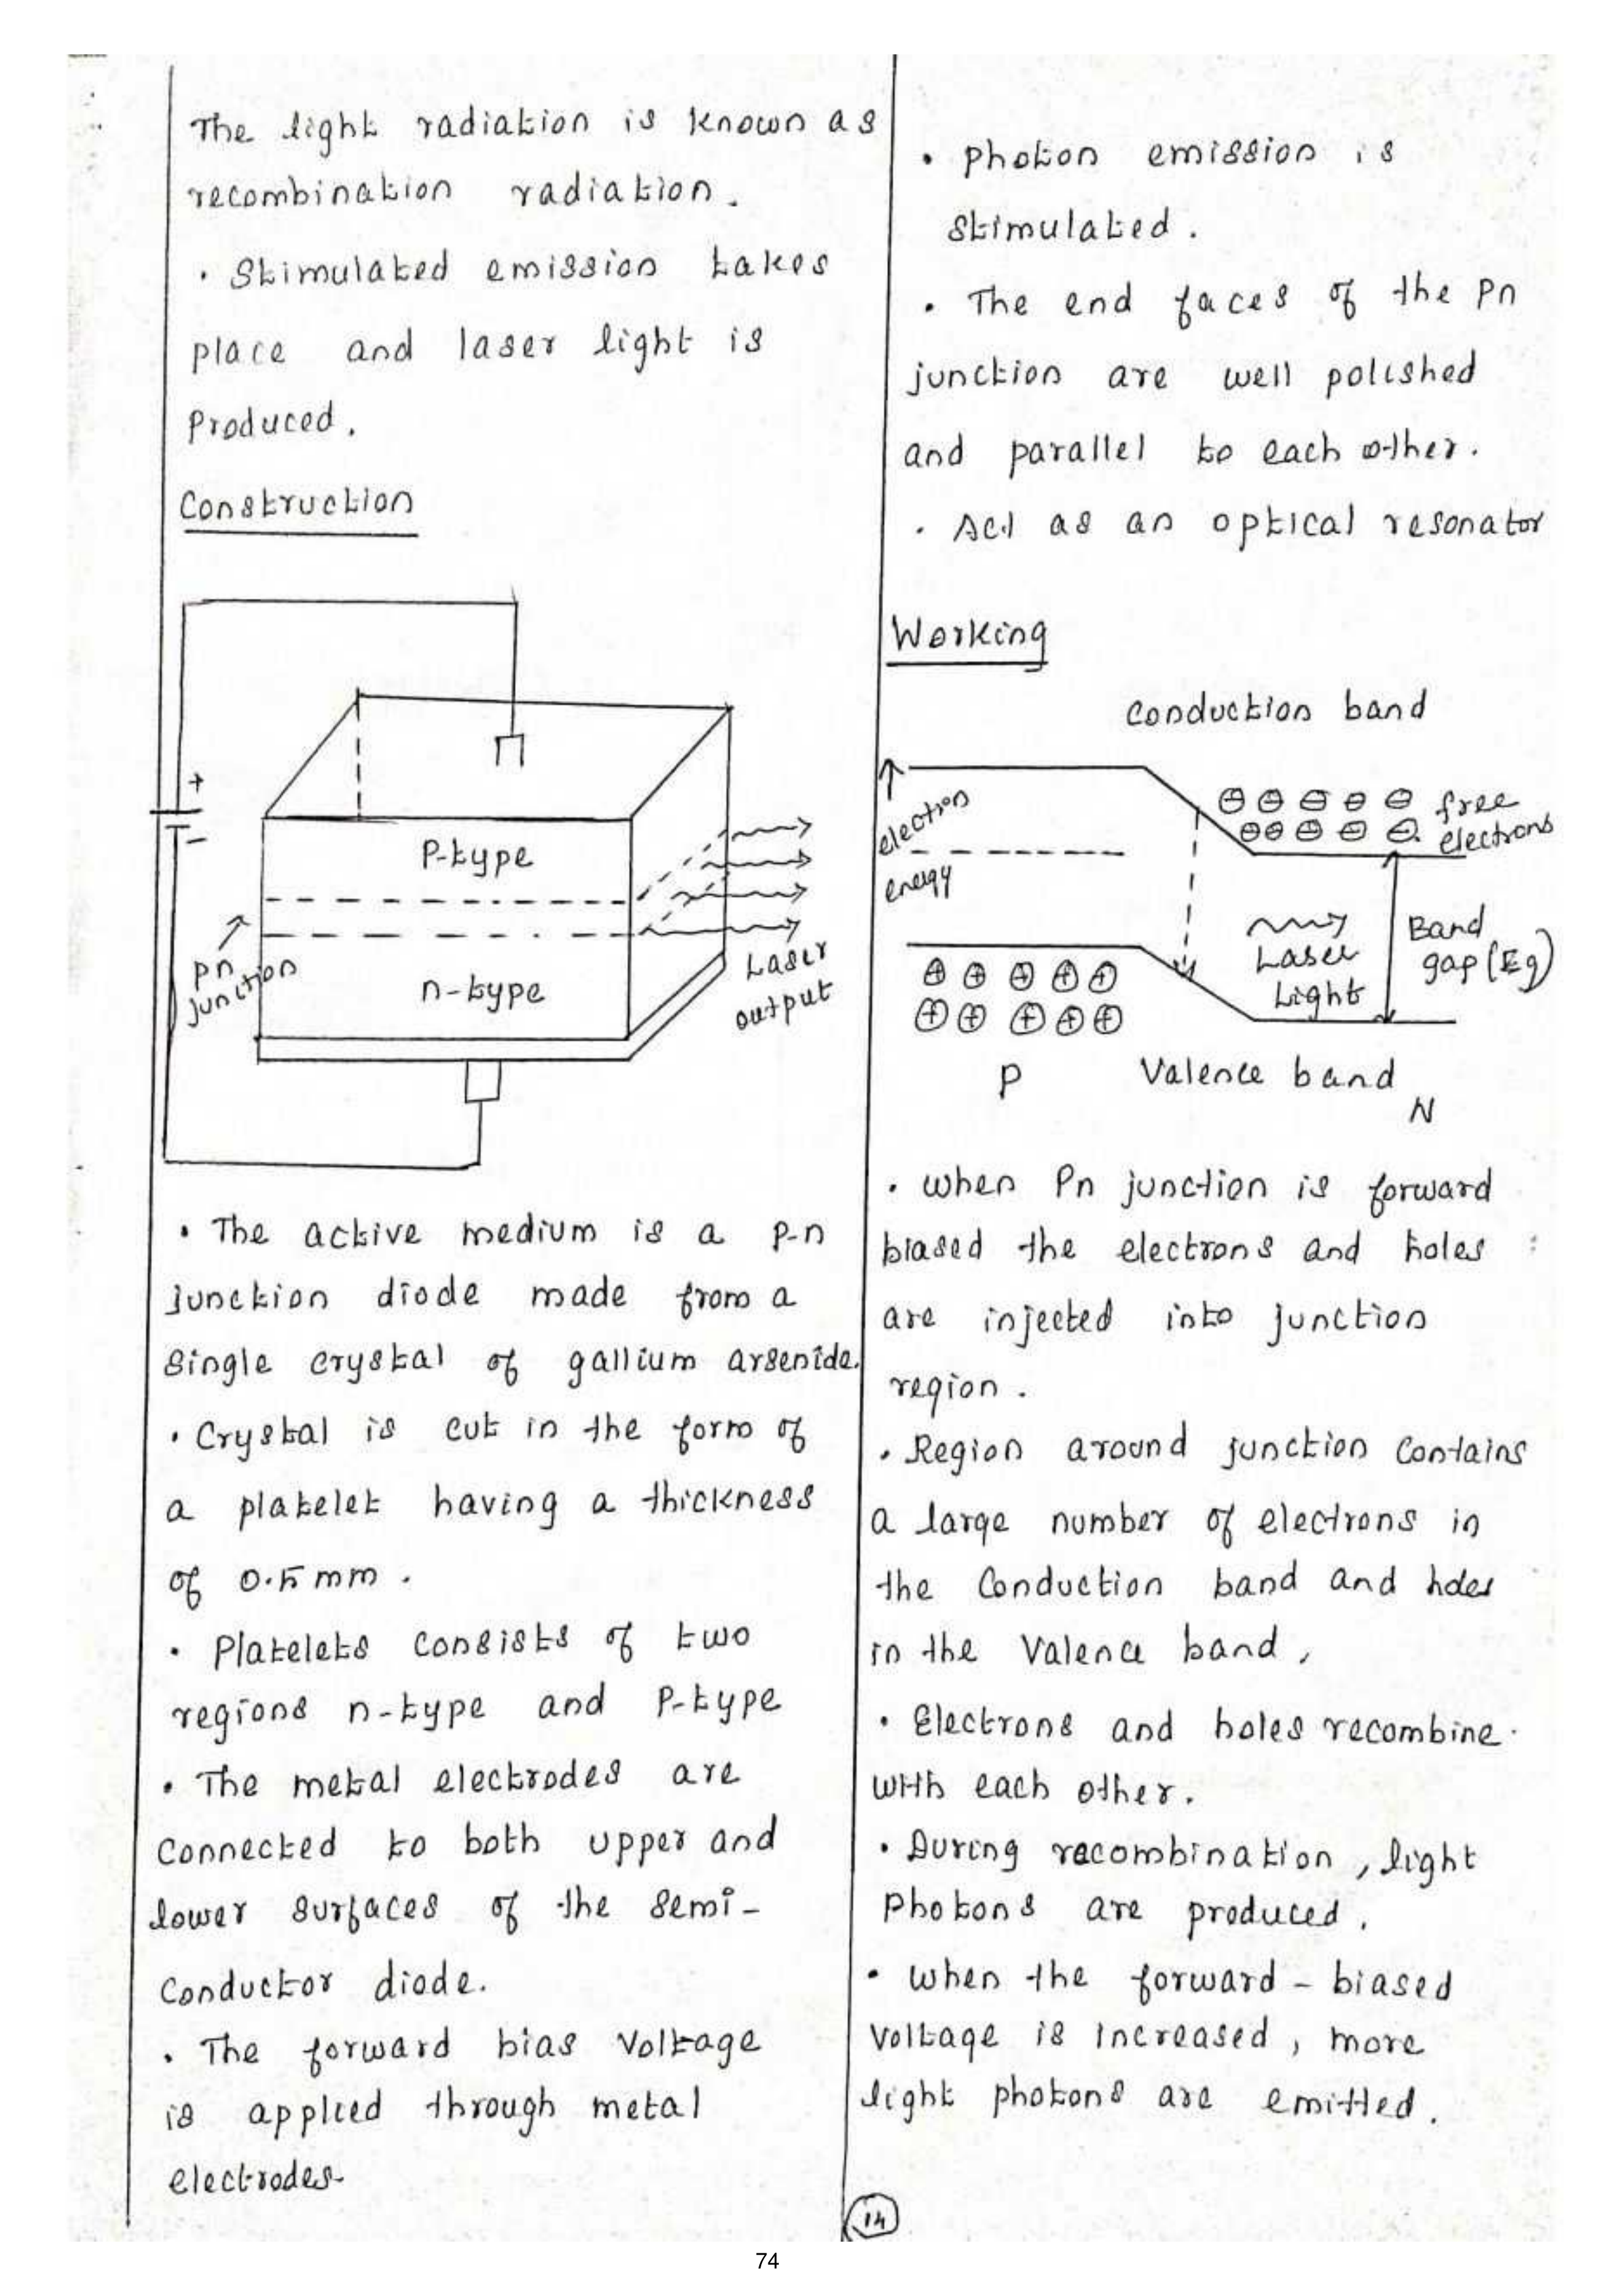 The light radiation is known as
recombination radiation.
• Stimulated emission takes
place and laser light is
Produced.
Construction
+
-
P-type
pn
junction
n-type
Laser
output
• The active medium is a p-n
junction diode made from a
single crystal of gallium arsenide.
• Crystal is cut in the form of
a platelet having a thickness
of 0.5 mm.
• Platelets consists of two
regions n-type and P-type
• The metal electrodes are
connected to both upper and
lower surfaces of the semi-
conductor diode.
• The forward bias voltage
is applied through metal
electrodes.
• photon emission is
stimulated.
• The end faces of the pn
junction are well polished
and parallel to each other.
• Act as an optical resonator
Working
Conduction band
electron
energy
free
electrons
Laser
Light
Band
gap (Eg)
P
Valence band
N
• when Pn junction is forward
biased the electrons and holes
are injected into junction
region.
• Region around junction contains
a large number of electrons in
the conduction band and holes
in the valence band,
• Electrons and holes recombine
with each other.
• During recombination, light
Photons are produced.
• when the forward - biased
voltage is increased, more
light photons are emitted.
14
74